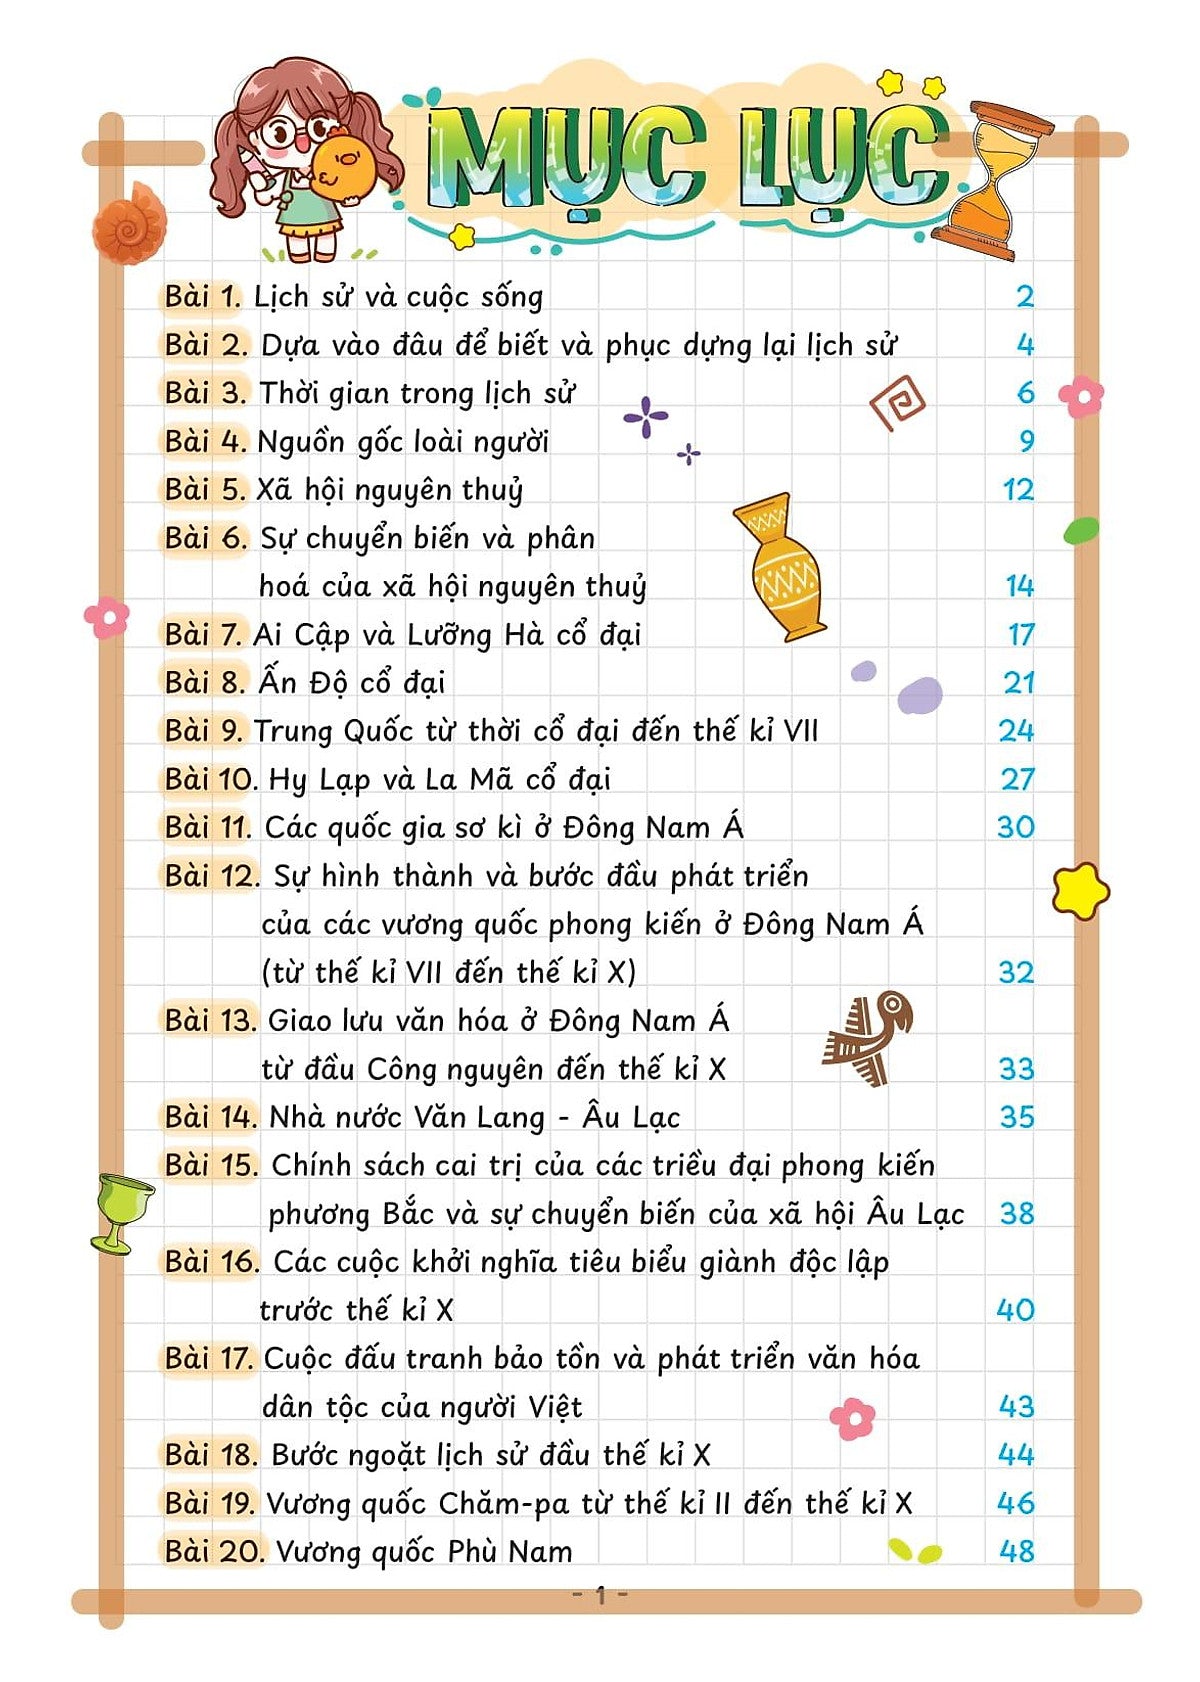 MỤC LỤC
Bài 1. Lịch sử và cuộc sống 2
Bài 2. Dựa vào đâu để biết và phục dựng lại lịch sử 4
Bài 3. Thời gian trong lịch sử 6
Bài 4. Nguồn gốc loài người 9
Bài 5. Xã hội nguyên thuỷ 12
Bài 6. Sự chuyển biến và phân
hoá của xã hội nguyên thuỷ 14
Bài 7. Ai Cập và Lưỡng Hà cổ đại 17
Bài 8. Ấn Độ cổ đại 21
Bài 9. Trung Quốc từ thời cổ đại đến thế kỉ VII 24
Bài 10. Hy Lạp và La Mã cổ đại 27
Bài 11. Các quốc gia sơ kì ở Đông Nam Á 30
Bài 12. Sự hình thành và bước đầu phát triển
của các vương quốc phong kiến ở Đông Nam Á
(từ thế kỉ VII đến thế kỉ X) 32
Bài 13. Giao lưu văn hóa ở Đông Nam Á
từ đầu Công nguyên đến thế kỉ X 33
Bài 14. Nhà nước Văn Lang - Âu Lạc 35
Bài 15. Chính sách cai trị của các triều đại phong kiến
phương Bắc và sự chuyển biến của xã hội Âu Lạc 38
Bài 16. Các cuộc khởi nghĩa tiêu biểu giành độc lập
trước thế kỉ X 40
Bài 17. Cuộc đấu tranh bảo tồn và phát triển văn hóa
dân tộc của người Việt 43
Bài 18. Bước ngoặt lịch sử đầu thế kỉ X 44
Bài 19. Vương quốc Chăm-pa từ thế kỉ II đến thế kỉ X 46
Bài 20. Vương quốc Phù Nam 48
- 1 -